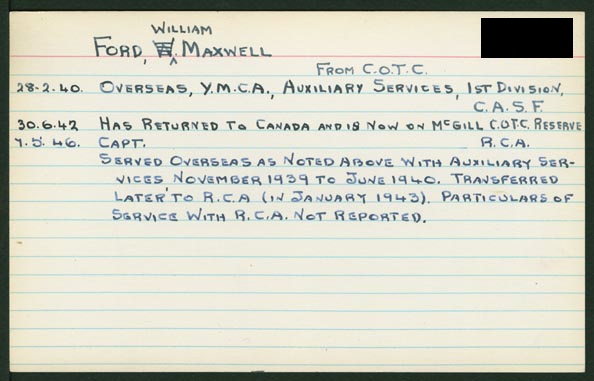 WILLIAM
FORD, W. MAXWELL
FROM C.O.T.C.
28-2-40. OVERSEAS, Y.M.C.A., AUXILIARY SERVICES, 1ST DIVISION,
C.A.S.F.
30.6.42 HAS RETURNED TO CANADA AND IS NOW ON MCGILL C.O.T.C. RESERVE
7.5.46. CAPT. R.C.A.
SERVED OVERSEAS AS NOTED ABOVE WITH AUXILIARY SER-
VICES NOVEMBER 1939 TO JUNE 1940. TRANSFERRED
LATER TO R.C.A (IN JANUARY 1943). PARTICULARS OF
SERVICE WITH R.C.A. NOT REPORTED.